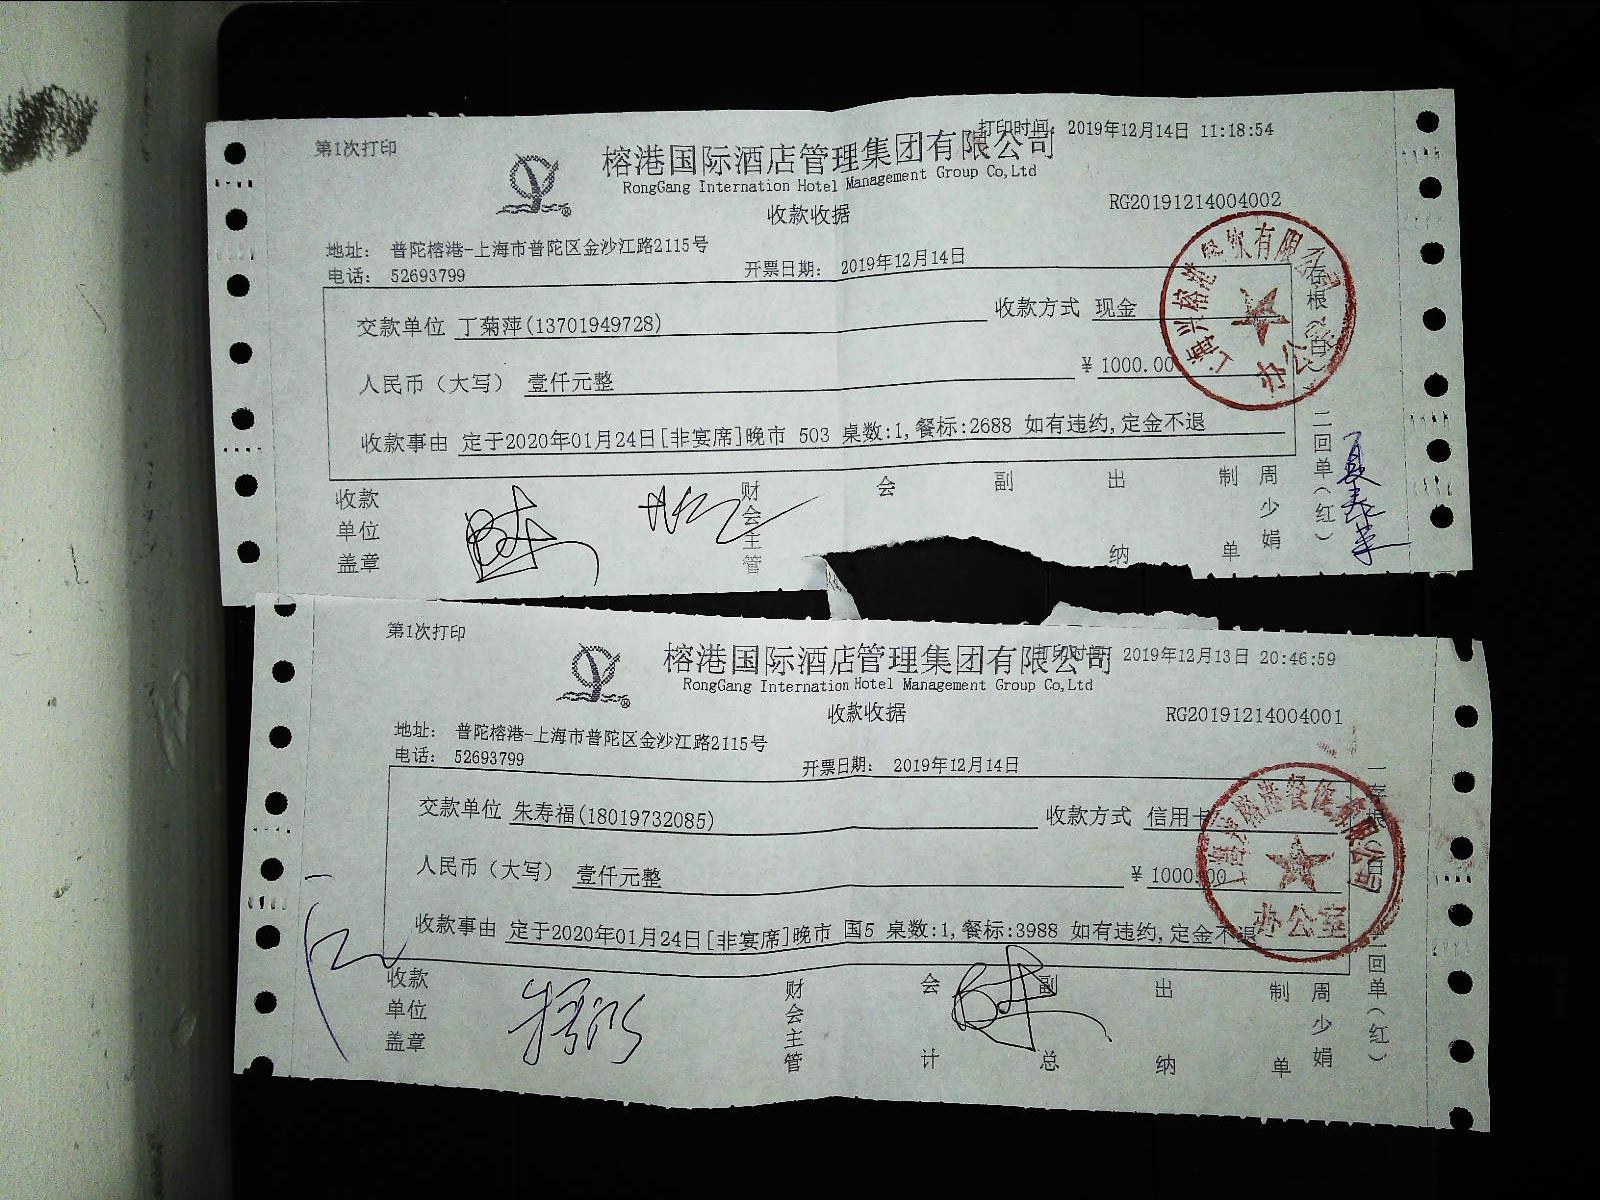 第1次打印
打印时间: 2019年12月14日 11:18:54
榕港国际酒店管理集团有限公司
RongGang Internation Hotel Management Group Co,Ltd
收款收据
RG20191214004002
地址: 普陀榕港-上海市普陀区金沙江路2115号
电话: 52693799
开票日期: 2019年12月14日
交款单位 丁菊萍(13701949728)
收款方式 现金
人民币（大写） 壹仟元整
¥ 1000.00
收款事由 定于2020年01月24日[非宴席]晚市 503 桌数:1,餐标:2688 如有违约,定金不退
收款单位盖章
财会主管
会
副
出纳
制单
周少娟
存根（白）
二回单（红）
上海兴榕港餐饮有限公司
办公
第1次打印
打印时间: 2019年12月13日 20:46:59
榕港国际酒店管理集团有限公司
RongGang Internation Hotel Management Group Co,Ltd
收款收据
RG20191214004001
地址: 普陀榕港-上海市普陀区金沙江路2115号
电话: 52693799
开票日期: 2019年12月14日
交款单位 朱寿福(18019732085)
收款方式 信用卡
人民币（大写） 壹仟元整
¥ 1000.00
收款事由 定于2020年01月24日[非宴席]晚市 国5 桌数:1,餐标:3988 如有违约,定金不退
收款单位盖章
财会主管
会计
副总
出纳
制单
周少娟
一存根（白）
二回单（红）
上海兴榕港餐饮有限公司
办公室